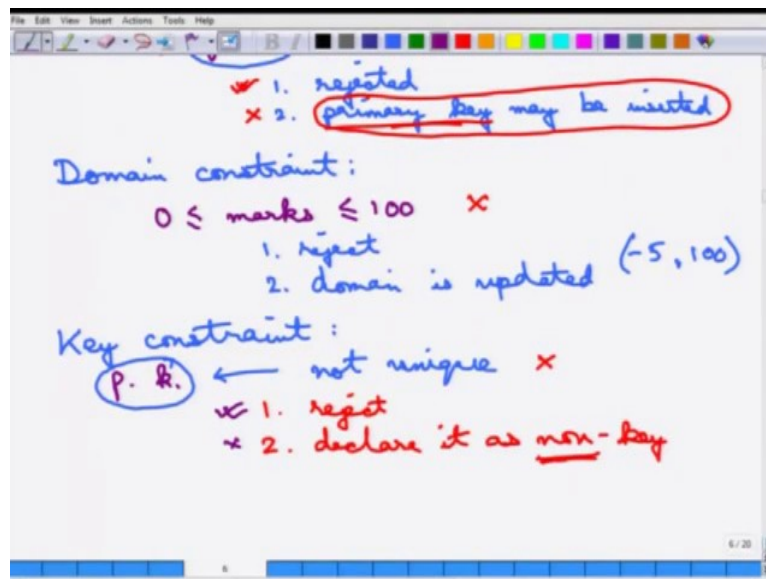 File Edit View Insert Actions Tools Help
1. rejected
2. primary key may be inserted
Domain constraint:
0 ≤ marks ≤ 100 ×
1. reject
2. domain is updated (-5, 100)
Key constraint:
p. k. ← not unique ×
1. reject
2. declare it as non-key
6/20
6